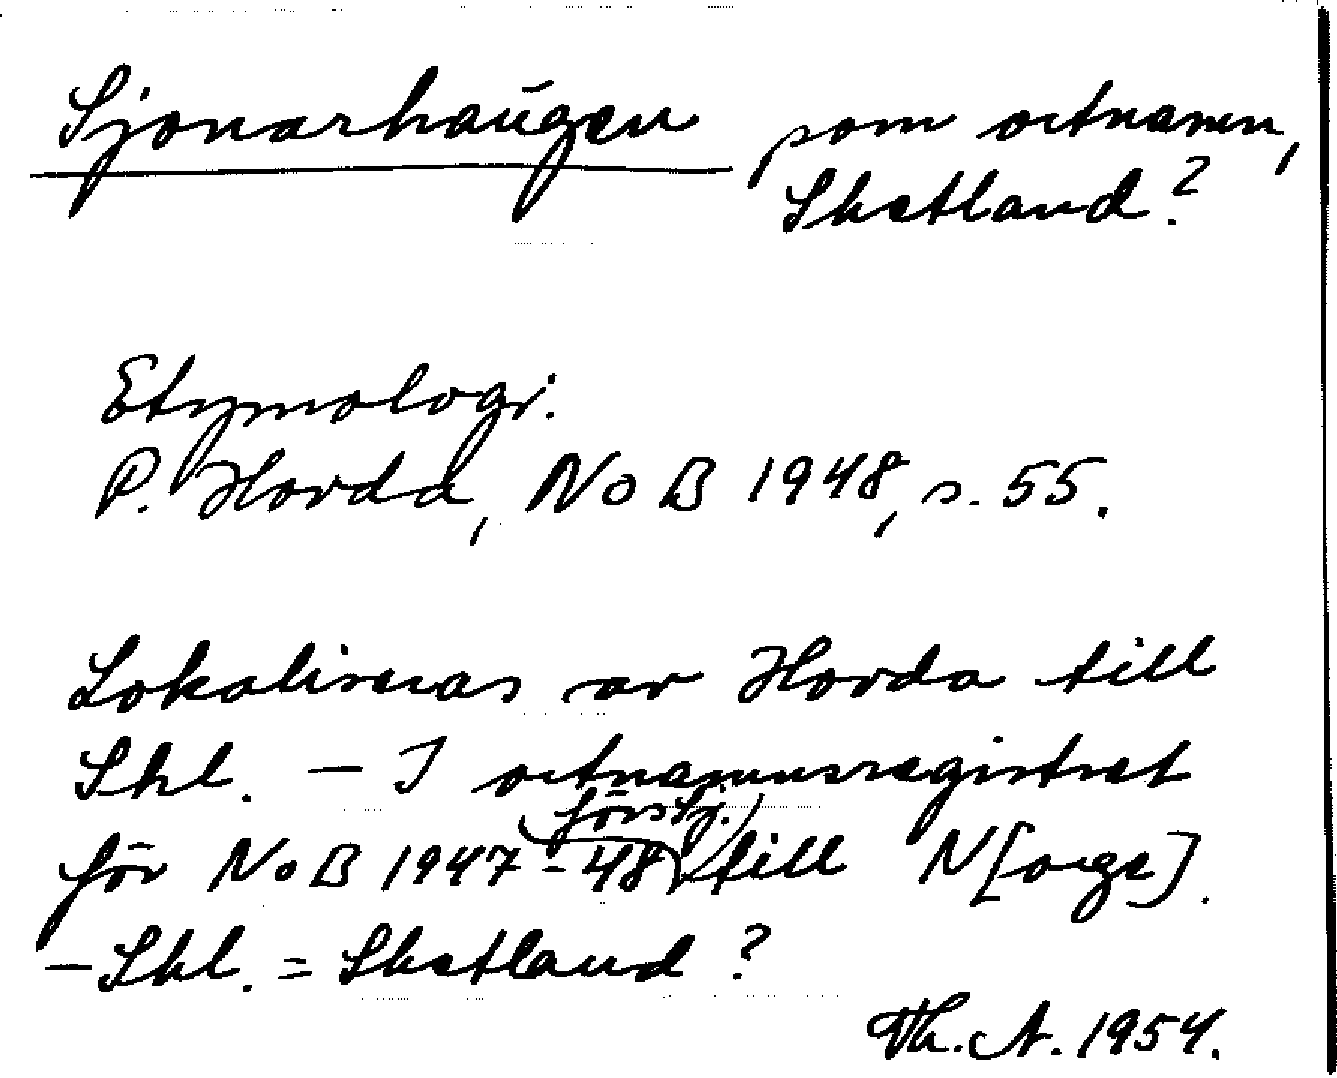 Sjonarhaugen som ortnamn,
Shetland?
Etymologi.
P. Hovda, NoB 1948, s. 55.
Lokaliseras av Hovda till
Shl. – I ortnamnsregistret
för NoB 1947-48 (förstg.) till N[orge].
– Shl. = Shetland?
Th. A. 1954.